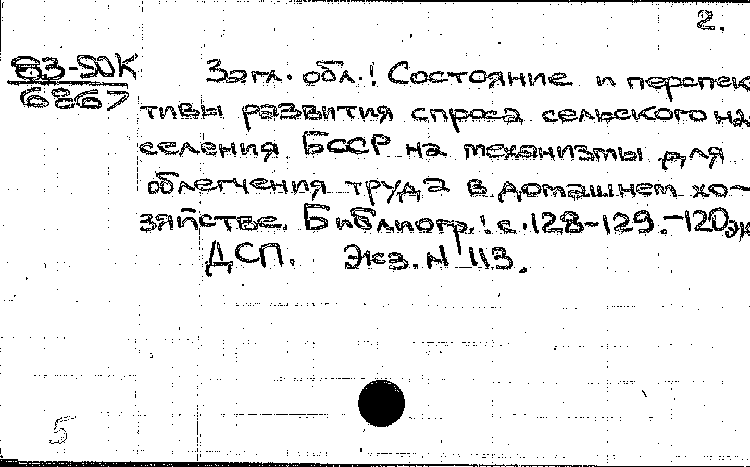 2.
83-50K
6867
Загл. обл.: Состояние и перспек
тивы развития спроса сельского на
селения БССР на механизмы для
облегчения труда в домашнем хо-
зяйстве. Библиогр.: с.128-129.-120эк
ДСП. Экз. N 113.
5